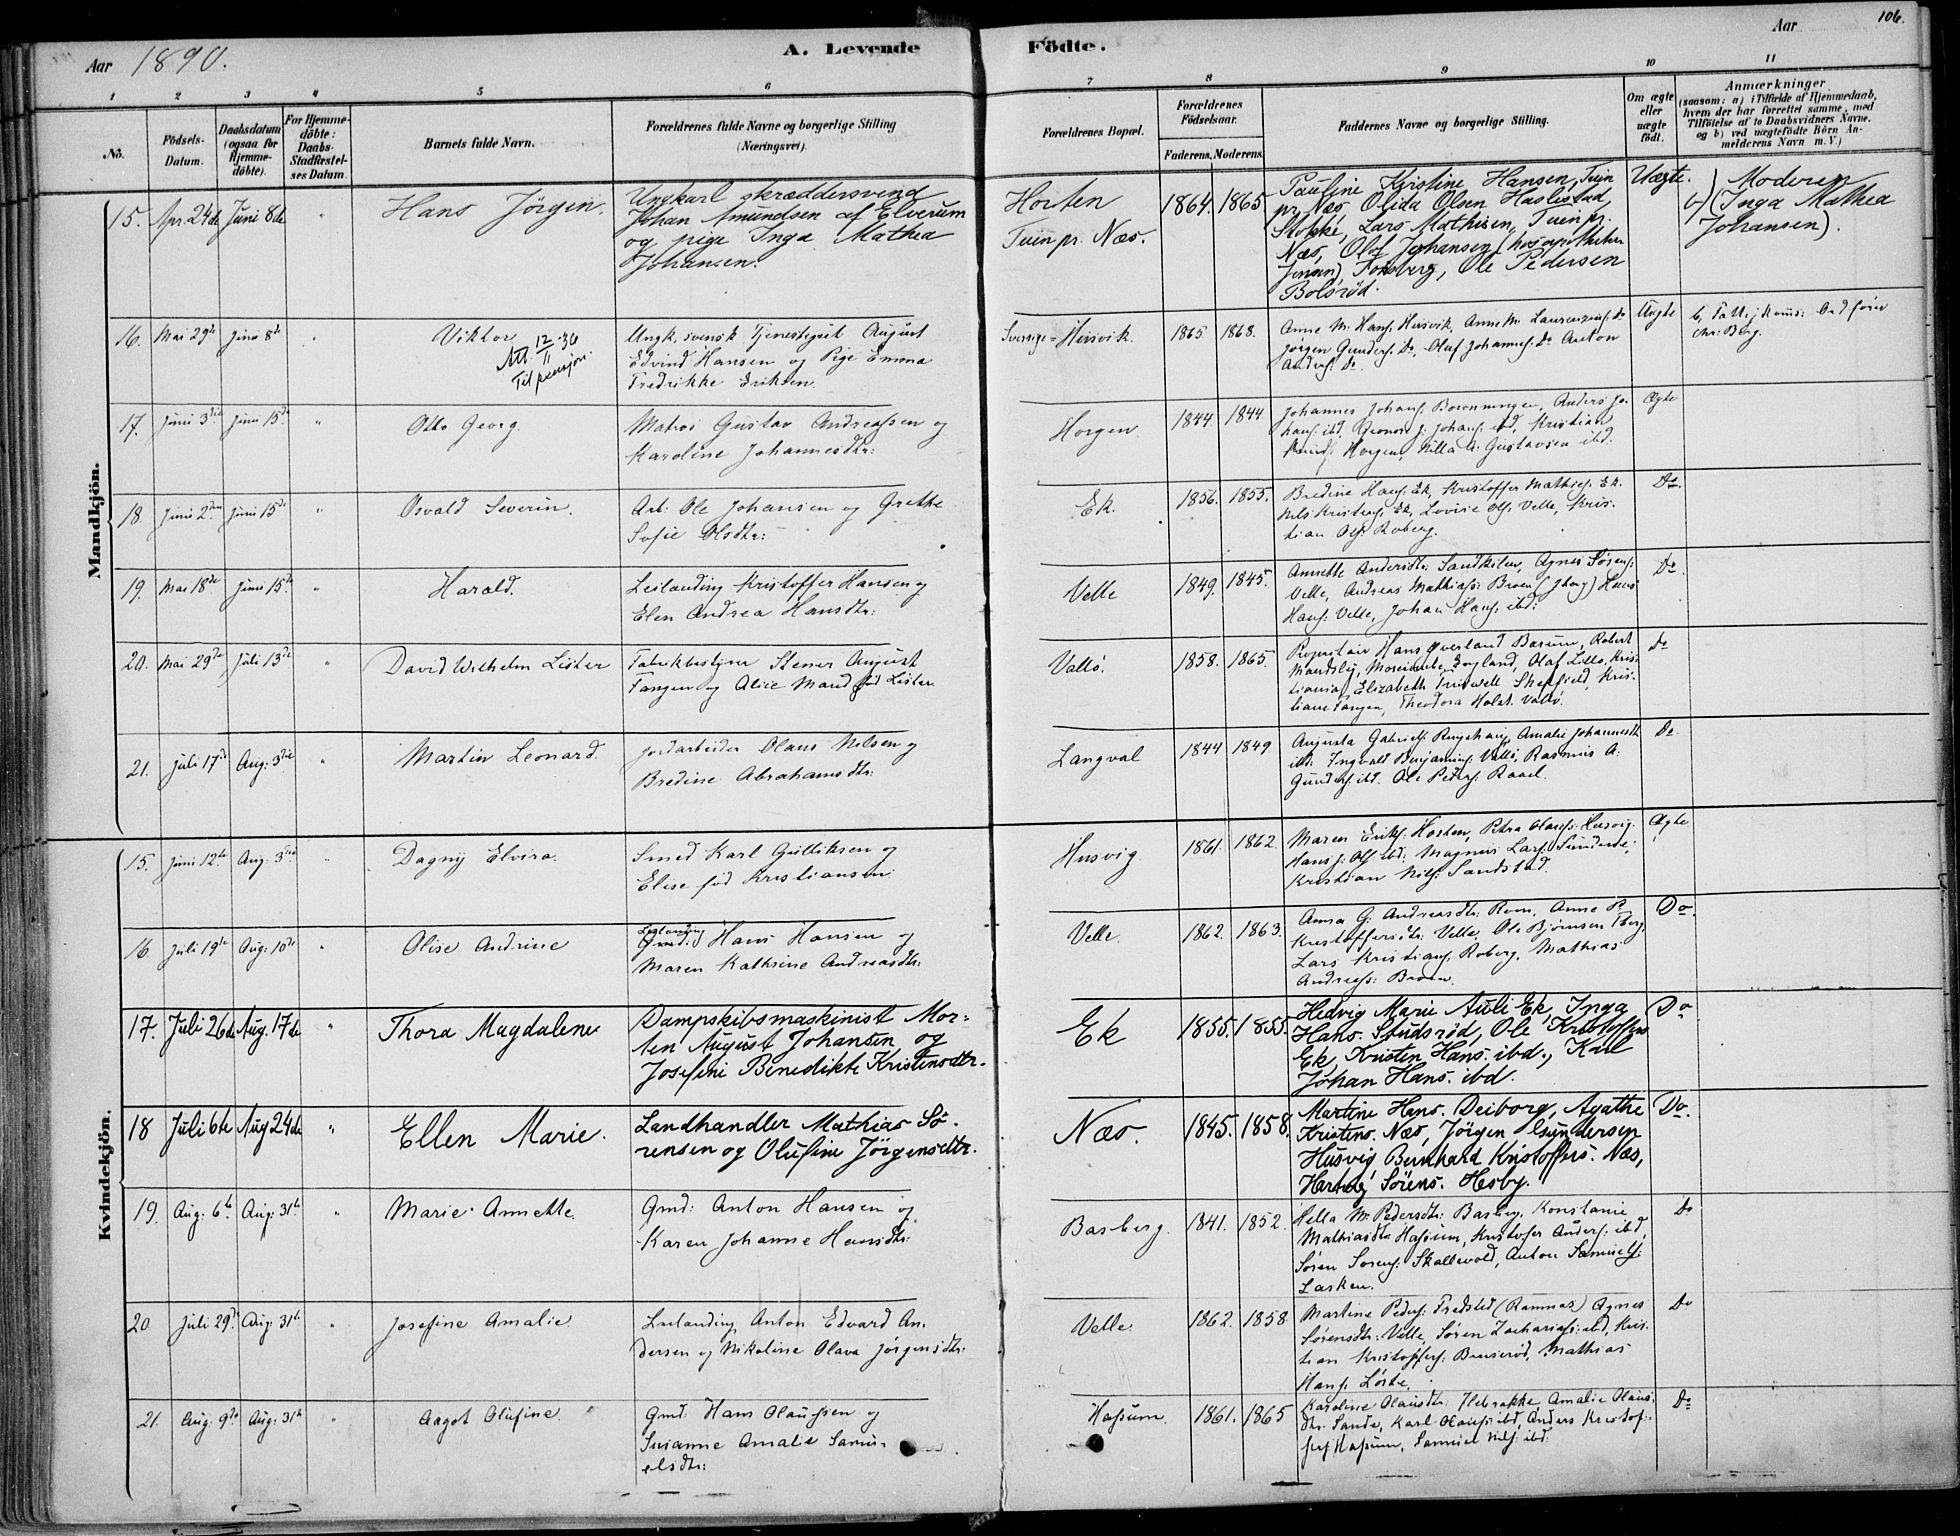 Aar 1890.
A. Levende Födte.
Aar
106.
1 2 3 4 5 6 7 8 9 10 11
No.
Födsels-Datum.
Daabsdatum (ogsaa for Hjemme-döbte).
For Hjemme-döbte: Daabs-Stadfæstel-ses Datum.
Barnets fulde Navn.
Forældrenes fulde Navne og borgerlige Stilling
(Næringsvei).
Forældrenes Bopæl.
Forældrenes Födselsaar.
Faderens. Moderens.
Faddernes Navne og borgerlige Stilling.
Om ægte eller uægte födt.
Anmærkninger
(saasom: a) i Tilfælde af Hjemmedaab,
hvem der har forrettet samme, med
Tilföielse af to Daabsvidners Navne.
og b) ved uægtefödte Börn An-
melderens Navn m. V.)
Mandkjön.
15. Apr. 24de Juni 8de " Hans Jörgen.
Ungkarl skræddersvend
Johan Amundsen af Elverum
og pige Inga Mathea
Johansen.
Horten
Tuin pr. Næs.
1864. 1865
Pauline Kristine Hansen, Tuin
pr. Næs, Olida Olsen Haslestad,
Stokke, Lars Mathisen, Tuin pr.
Næs, Olaf Johansen (hos apotheker
Jensen) Tönsberg, Ole Pedersen
Bolsröd.
Uægte.
b) Moderen
(Inga Mathea
Johansen).
16. Mai 29de Juni 8de " Viktor
Att. 12/11-36
Til pensjon.
Ungk. svensk Tjenestegut August
Edvind Hansen og Pige Emma
Fredrikke Eriksen.
Sverige = Husvik.
1865. 1868.
Anne M. Hans. Husvik, Anne M. Laurenzens. Do
Jörgen Gunders. Do, Oluf Johannes. Do Anton
Anders. Do.
Uægte
Chr: Berg.
17. Juni 3die Juni 15de " Otto Georg.
Matros Gustav Andreassen og
Karoline Johannesdtr:
Horgen
1844 1844
Ægte
18. Juni 2den Juni 15de " Osvald Severin.
Arb: Ole Johansen og Grethe
Sofie Olsdtr:
Ek.
1856. 1855.
Bredine Hans. Ek, Kristoffer Mathies. Ek.
Nils Kristens. Ek, Lovise Ols. Velle, Kris-
tian Ols. Roberg.
Do.
19. Mai 18de Juni 15de " Harald.
Leilænding Kristoffer Hansen og
Elen Andrea Hansdtr:
Velle
1849. 1845.
Annette Andersdtr: Sandkilen, Agnes Sörens.
Velle, Andreas Mathias: Broen (Jberg) Hans
Hans. Velle, Johan Hans. ibd:
Do.
20. Mai 29de Juli 13de " David Wilhelm Lister
Fabrikbestyrer Stener August
Tangen og Alice Maud föd Lister
Vallö.
1858. 1865.
England, Olaf Lille, Kris-
tiania, Elizabeth Sheffield, Kris-
tiane Tangen, Theodora Holst. Vallö.
Do
21. Juli 17de Aug: 3die " Martin Leonard.
Jordarbeider Olaus Nilsen og
Bredine Abrahamsdtr:
Langval
1844 1849
Augusta Gabriels. Ringshaug, Amalie Johannesdtr
ibd: Ingvald Benjamins: Vallö, Rasmus A.
Gunders. ibd. Ole Peders. Raael.
Do.
Kvindekjön.
15. Juni 12te Aug: 3die " Dagny Elvira.
Smed Karl Gulliksen og
Elise föd Kristiansen.
Husvig.
1861. 1862.
Maren Eriks: Horten, Petra Olaus: Husvig.
Hans J. Ols ibd: Magnus Lars. Sundene,
Kristian Nils. Sandstad.
Ægte
16. Juli 19de Aug: 10de " Olise Andrine
Leilænding
(Gmd:) Hans Hansen og
Maren Kathrine Andreasdtr:
Velle.
1862. 1863.
Anna G. Andreasdtr: Roen, Anne P.
Kristoffersdtr: Velle, Ole Björnsen Tberg,
Lars Kristians. Roberg, Mathias
Andreas: Broen.
Do.
17. Juli 26de Aug. 17de " Thora Magdalene
Dampskibsmaskinist Mor-
ten August Johansen og
Josefine Benedikte Kristensdtr.
Ek
1855. 1855.
Hedvig Marie Auli Ek, Inga
Hans. Studsröd, Ole Kristoffers.
Ek, Kristen Hans. ibd., Karl
Johan Hans. ibd.
Do
18 Juli 6te Aug 24de " Ellen Marie.
Landhandler Mathias Sö-
rensen og Olufine Jörgensdtr.
Næs.
1845. 1858.
Martine Hans. Deiborg, Agathe
Kristens. Næs, Jörgen Gundersen
Husvig Bernhard Kristoffers. Næs,
Hartvig Sörens. Hesby.
Do.
19. Aug: 6te Aug: 31te " Marie Annette.
Gmd: Anton Hansen og
Karen Johanne Hansdtr:
Basberg.
1841. 1852.
Hella M. Pedersdtr: Basberg, Konstanse
Mathiasdtr Hassum, Kristofer Anders. ibd,
Sören Sörens. Skallevold, Anton Samuels:
Lasken.
Do
20 Juli 29de Aug: 31te " Josefine Amalie.
Leilænding Anton Edvard An-
dersen og Nikoline Olava Jörgensdtr:
Velle.
1862. 1858
Martine Peders. Fredsted (Ramnæs) Agnes
Sörensdtr: Velle, Sören Zacharias: ibd, Kris-
tian Kristoffers: Bruseröd, Mathias
Hans. Löste.
Do
21. Aug: 9de Aug: 31te " Aagot Olufine.
Gmd: Hans Olaussen og
Susanne Amalie Samu-
elsdtr:
Hassum.
1861. 1865
Karoline Olausdtr: Amalie Olaus-
dtr: Sande, Karl Olaus: ibd, Anders Kristof-
fers. Hassum, Samuel Nils. ibd:
Do